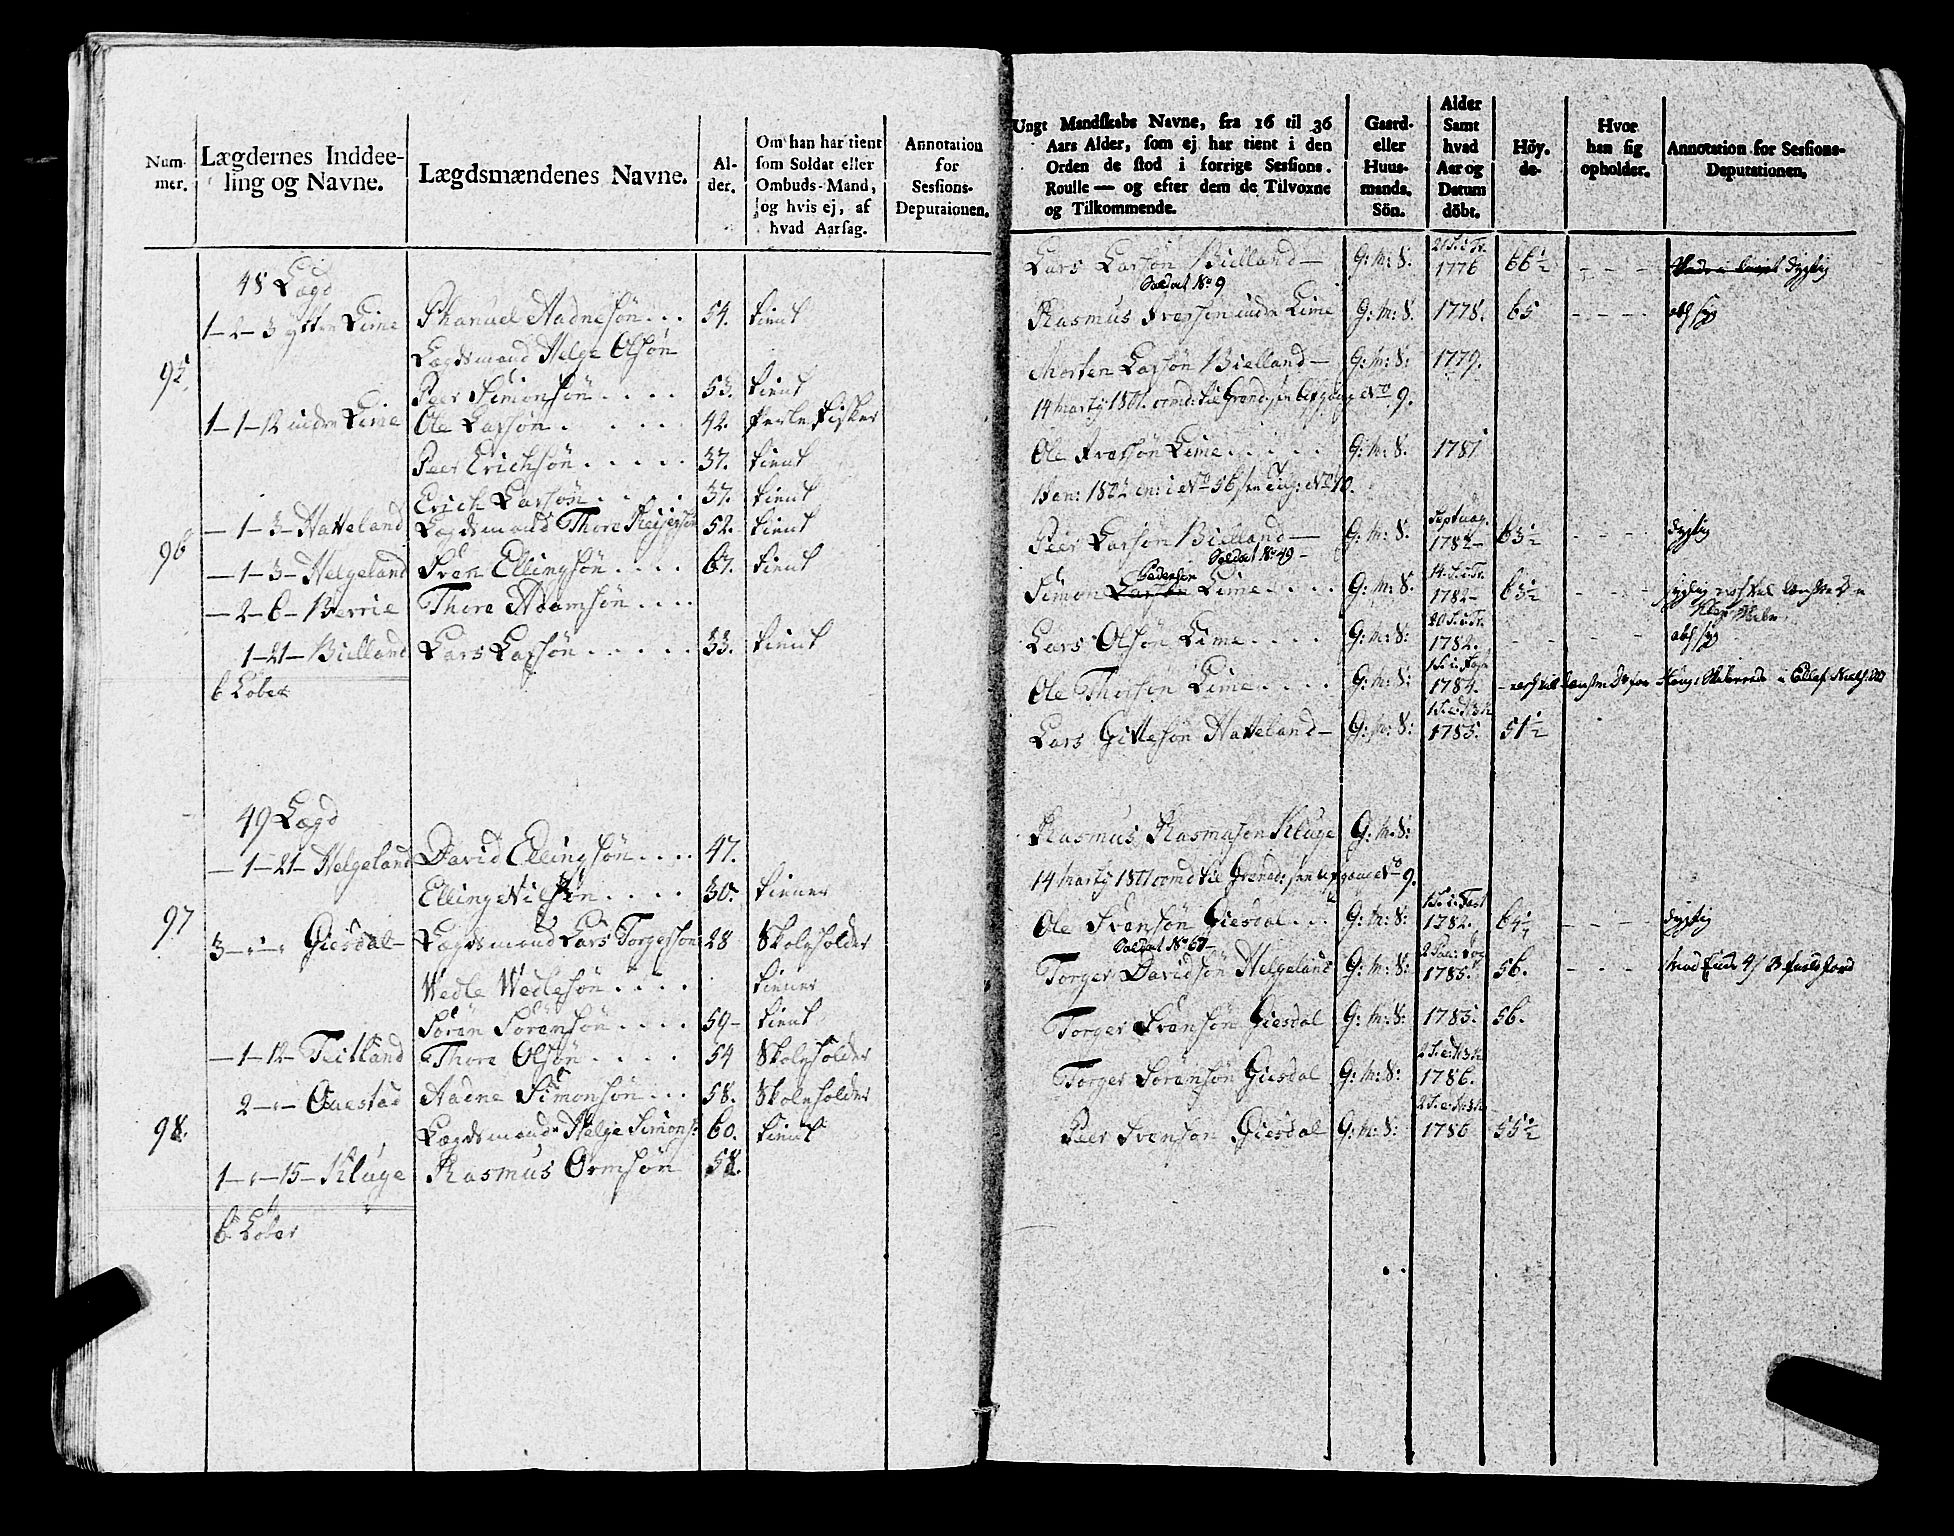 Num-
mer.
Lægdernes Inddee-
ling og Navne.
Lægdsmændenes Navne.
Al-
der.
Om han har tient
som Soldat eller
Ombuds-Mand,
og hvis ej, af
hvad Aarsag.
Annotation
for
Sessions-
Deputaionen.
48 Lægd
1-2-3 yttre Lime Phanuel Aadnesøn . . . 54. tient
Lægdsmand Helge Olsøn
95.
Peer Simonsøn . . . . 53. tient
1-1-12 indre Lime Ole Larsøn . . . . . . 42. Perle Fisker
Peer Erichsøn . . . . . 37. tient
Erich Larsøn . . . . . 37. tient
-1-3-Hatteland Lægdsmand Thore 52. tient
96
-1-3-Helgeland Sven Ellingsøn . . . . 67. tient
-2-6-Berrie Thore Adamsøn . . . .
1-21-Bielland Lars Larsøn . . . . . 33. tient
6 Løber
49 Lægd
-1-21-Helgeland David Ellingsøn . . . . 47.
Elling Nilsøn . . . . 30. tiener
97
3-"-" Giesdal- Lægdsmand Lars Torgersøn 28 Skoleholder
Wedle Wedlesøn . . . . tiener
Sören Sörensøn . . . . 59- tient
-1-12-Teitland Thore Olsøn . . . . 54 Skoleholder
2-"- Auestad Aadne Simonsøn . . . 58. Skoleholder
98.
Lægdsmand Helge Simons: 60. tient
1-"-15-Kluge Rasmus Ormsøn 58.
6 Løber
Ungt Mandskabs Navne, fra 16 til 36
Aars Alder, som ej har tient i den
Orden de stod i forrige Sessions-
Roulle — og efter dem de Tilvoxne
og Tilkommende.
Gaard-
eller
Huus-
mands.
Sön.
Alder
Samt
hvad
Aar og
Datum
döbt.
Höy.
de.
Hvor
han sig
opholder.
Annotation for Sessions-
Deputationen.
Lars Larsøn Bielland- G:m:S: 1776 66½ - - - dygtig
Soldat No 9
Rasmus indre Lime G:m:S. 1778. 65 - - - -
Morten Larsøn Bielland- G:m:S: 1779.
14 marty 1801. No 9.
Ole Lime . . . . . G:m:S. 1781
Peer Larsøn Bielland- G:m:S. Septuag. 1782- 63½ - - - - dygtig
Soldat No 49-
Simon Larsøn Pedersøn Lime . . . . G:m:S. 14.S.e.Tr. 1782- 63½ - - -
Lars Olsøn Lime . . . . G:m:S: 20 S.e.Tr. 1782. - - - -
Ole Thorsøn Lime . . . . G:m:S: 1784.
Lars Gittesøn Hatteland- G:m:S: 1785. 51½
Rasmus Rasmusøn Kluge G:m:S:
14 marty 1801 No 9.
Ole Svensøn Giesdal . . . G:m:S: 1 S.i.Fast 1782. 64½ - - - dygtig
Soldat No 67-
Torger Davidsøn Helgeland G:m:S: 1785. 56. - - -
Torger Svensøn Giesdal G:m:S: 1785. 56.
Torger Sörensøn Giesdal G:m:S: 1786.
Peer Svensøn Giesdal G:m:S: 1786 55½